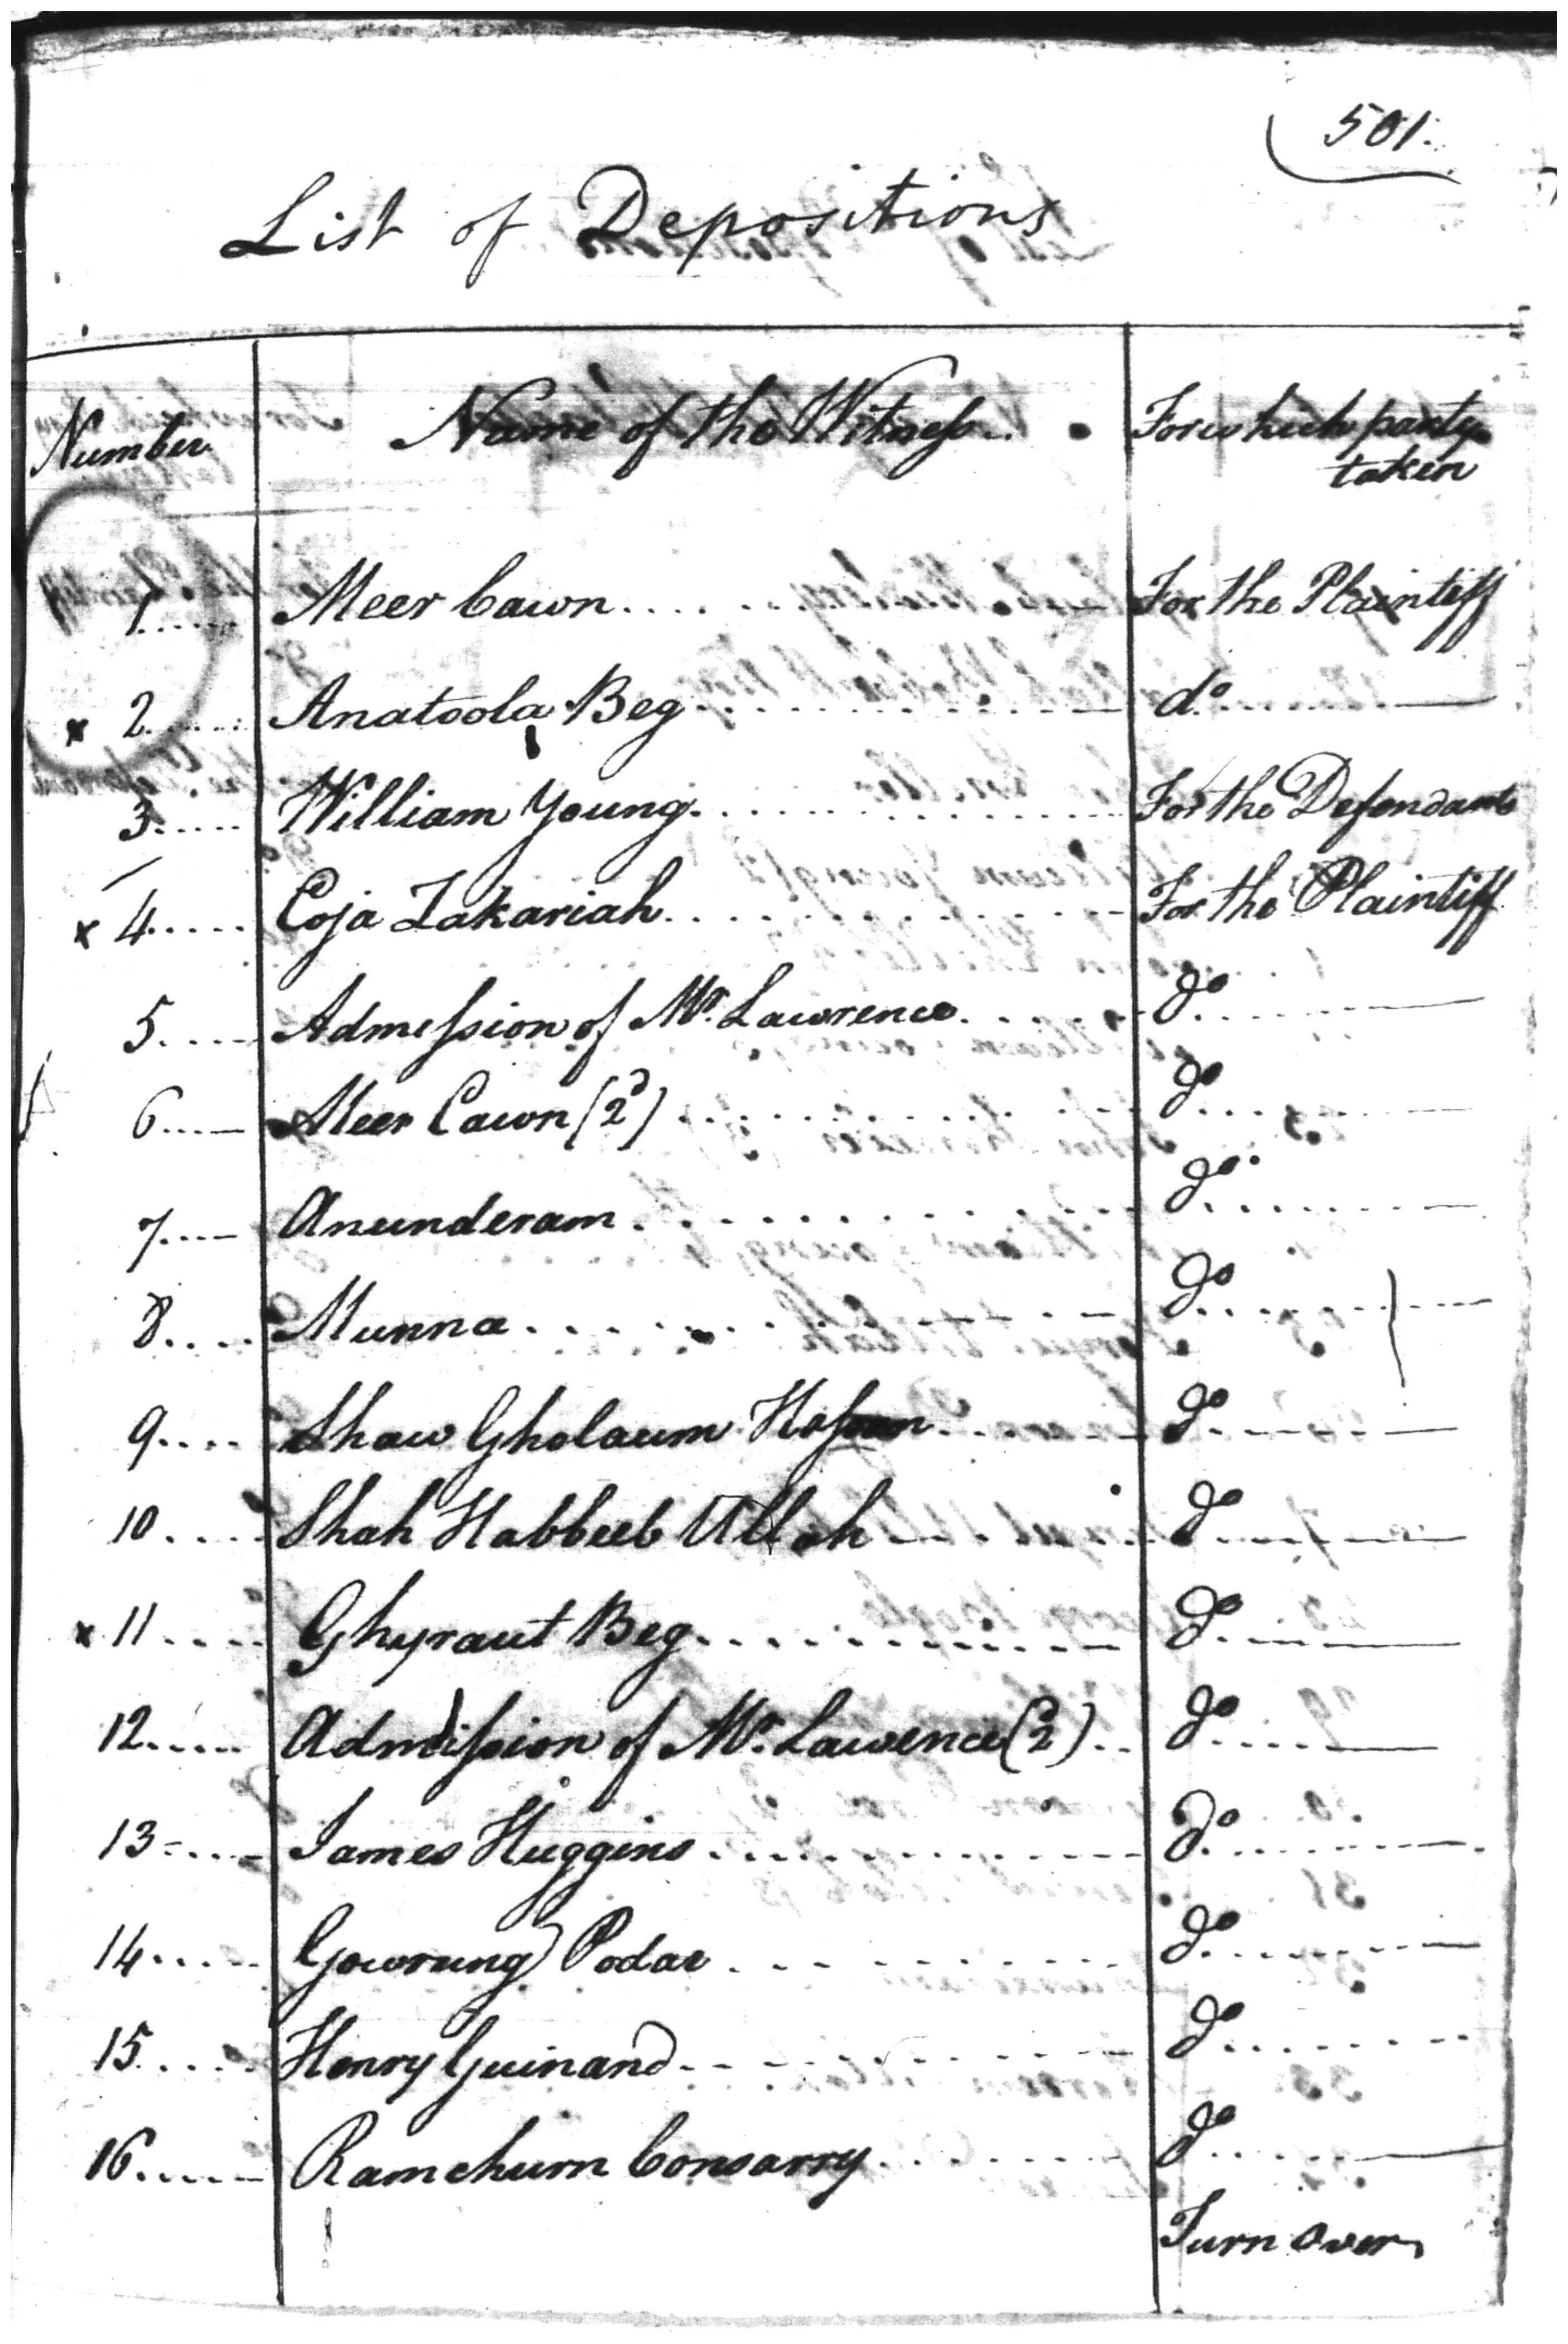 501.
List of Depositions
Number Name of the Witness. For which party
taken
1...... Meer Cawn....... For the Plaintiff
x 2...... Anatoola Beg............ do.........
3..... William Young............ For the Defendants
x 4..... Coja Zakariah............ For the Plaintiff
5.... Admession of Mr. Lawrence...... do.......
6.... Meer Cawn (2d)............ do.......
7.... Anunderam............ do.......
8.... Munna............ do.......
9.... Shaw Gholaum...... do.......
10.... Shah Habbeeb Ullah...... do.......
x 11.... Ghyraut Beg............ do.......
12.... Admission of Mr. Lawrence (2d).. do.......
13.... James Huggins............ do.......
14.... Gowrung Podar............ do.......
15.... Henry Guinand............ do.......
16.... Ramchurn Consarry....... do.......
Turn over